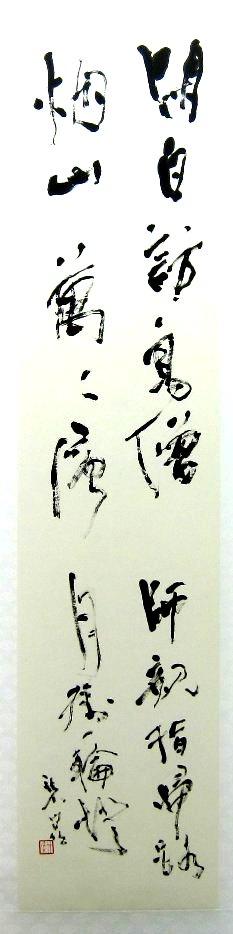 閑自訪高僧 師親指歸路
烟山萬々層 月挂一輪燈